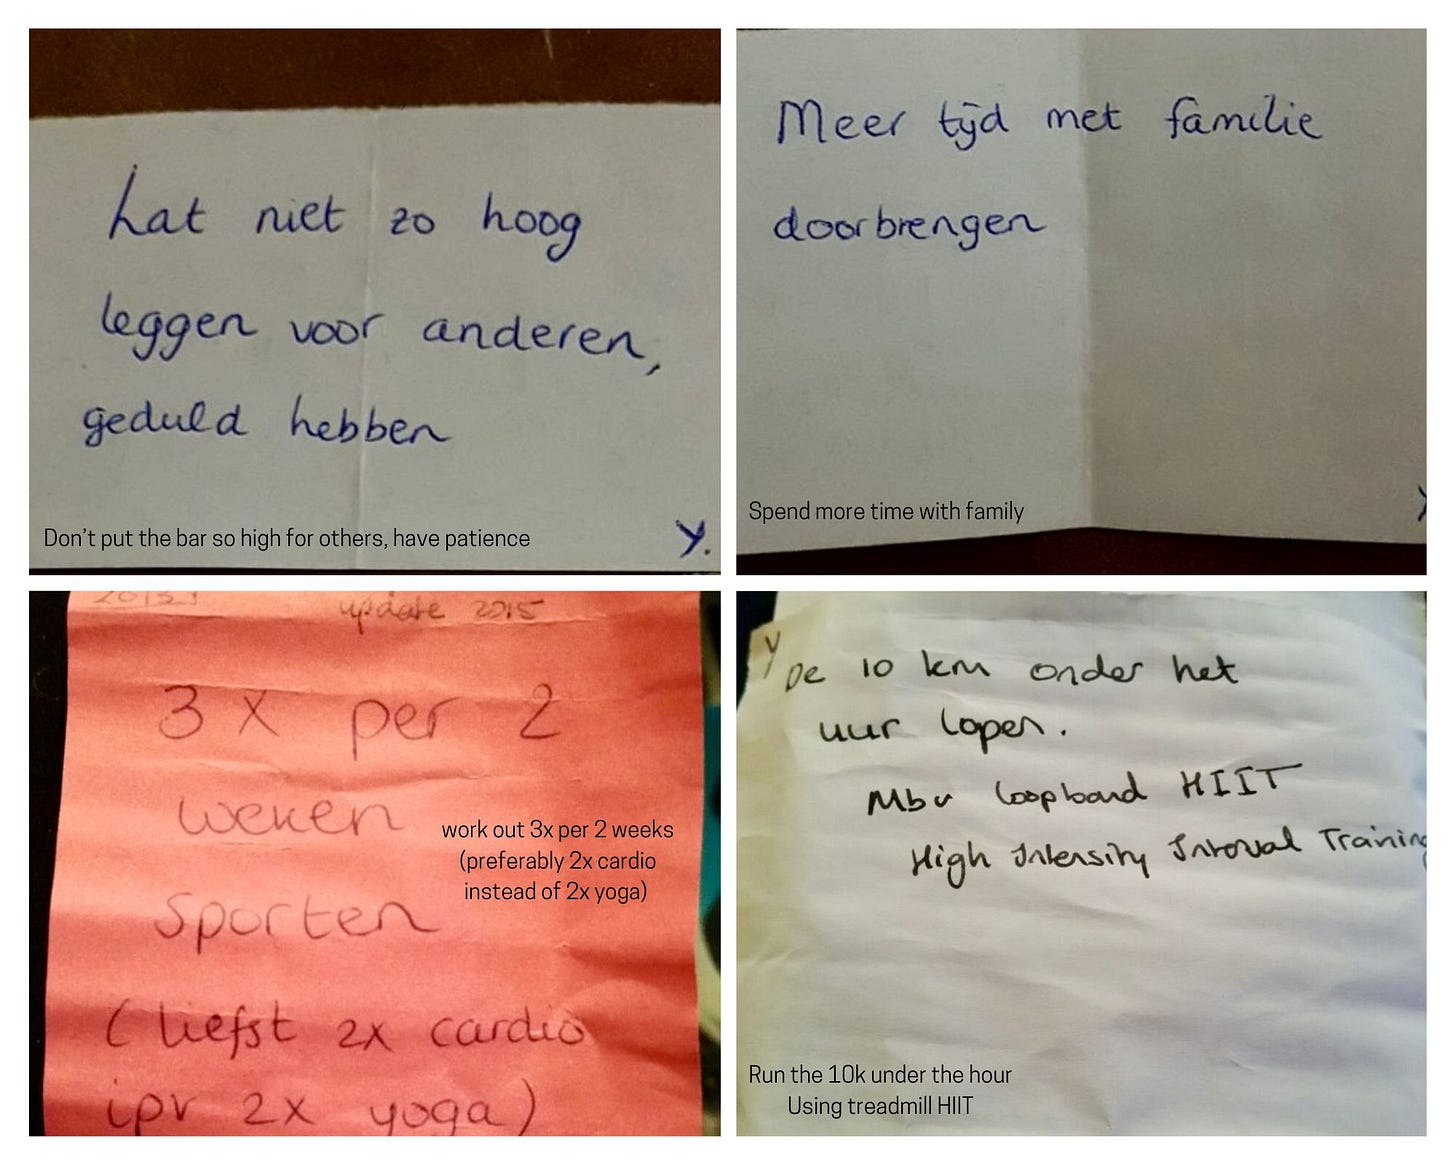 Lat niet zo hoog
leggen voor anderen,
geduld hebben
Don't put the bar so high for others, have patience
y.
Meer tijd met familie
doorbrengen
Spend more time with family
update 2015
3 x per 2
weken
sporten
(liefst 2x cardio
ipv 2x yoga)
work out 3x per 2 weeks
(preferably 2x cardio
instead of 2x yoga)
Y
De 10 km onder het
uur lopen.
Mbv loopband HIIT
High Intensity Interval Training
Run the 10k under the hour
Using treadmill HIIT